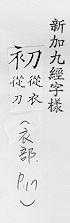 新加九經字樣
初從衣從刀
(衣部
P.17)